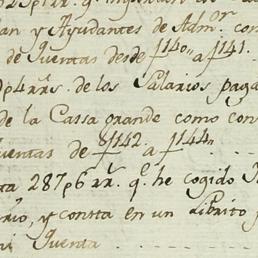 an y Ayudantes de Adm.or con
de Quentas desde f140,, a f141.
p4 rr.s de los Salarios paga
de la Cassa grande como con
uentas de f142 a f144,,
ta 287p6 rr.s q.e he cogido
rio, y consta en un Librito
mi Quenta